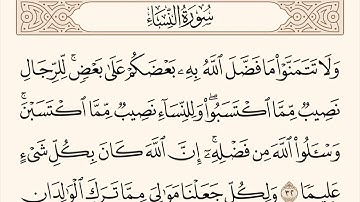 سُورَةُ النِّسَاءِ
وَلَا تَتَمَنَّوْا۟ مَا فَضَّلَ ٱللَّهُ بِهِۦ بَعْضَكُمْ عَلَىٰ بَعْضٍۚ لِّلرِّجَالِ
نَصِيبٌ مِّمَّا ٱكْتَسَبُوا۟ۖ وَلِلنِّسَآءِ نَصِيبٌ مِّمَّا ٱكْتَسَبْنَۚ
وَسْـَٔلُوا۟ ٱللَّهَ مِن فَضْلِهِۦٓۗ إِنَّ ٱللَّهَ كَانَ بِكُلِّ شَىْءٍ
عَلِيمًا ٣٢ وَلِكُلٍّ جَعَلْنَا مَوَٰلِىَ مِمَّا تَرَكَ ٱلْوَٰلِدَانِ